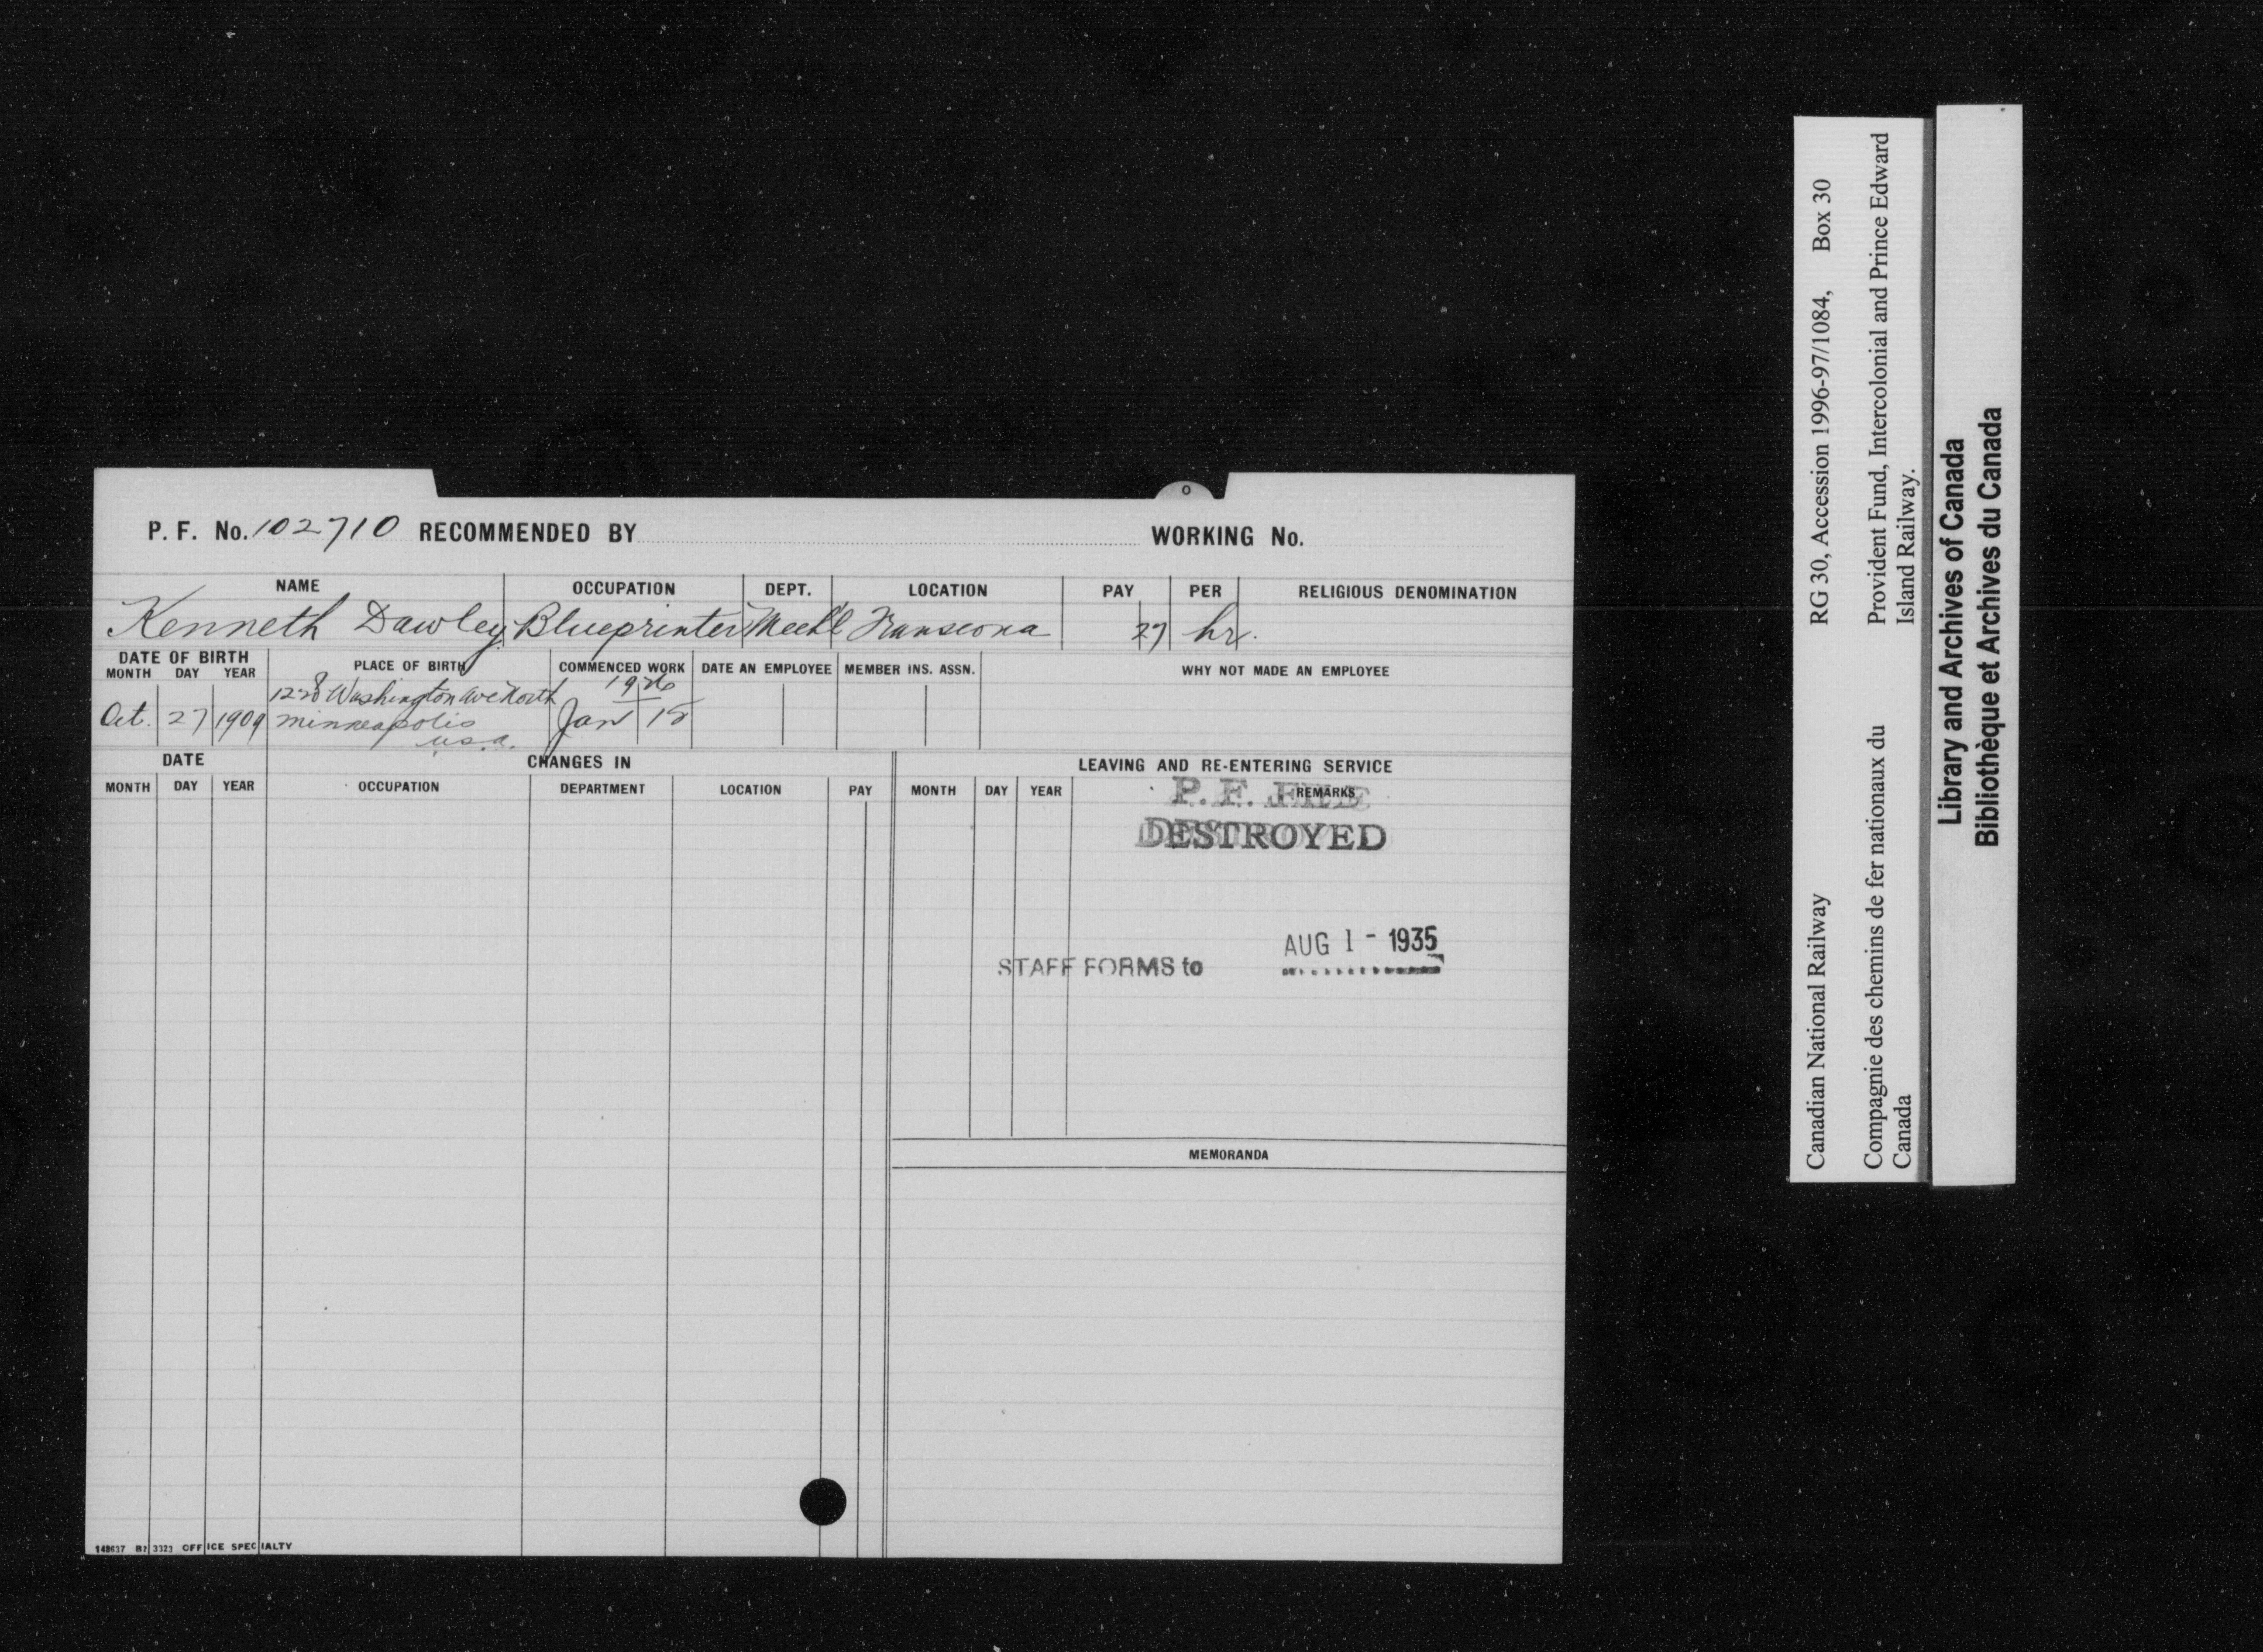 P. F. No. 102710 RECOMMENDED BY WORKING No.
NAME OCCUPATION DEPT. LOCATION PAY PER RELIGIOUS DENOMINATION
Kenneth Dawley Blueprinter Mech'l Transcona 27 hr.
DATE OF BIRTH PLACE OF BIRTH COMMENCED WORK DATE AN EMPLOYEE MEMBER INS. ASSN. WHY NOT MADE AN EMPLOYEE
MONTH DAY YEAR
1228 Washington Ave North 1926
Oct. 27 1909 Minneapolis Jan 18
U.S.A.
DATE CHANGES IN LEAVING AND RE-ENTERING SERVICE
MONTH DAY YEAR OCCUPATION DEPARTMENT LOCATION PAY MONTH DAY YEAR REMARKS
P. F. FILE
DESTROYED
AUG 1 - 1935
STAFF FORMS to
MEMORANDA
148637 R2 3323 OFFICE SPECIALTY
Canadian National Railway RG 30, Accession 1996-97/1084, Box 30
Compagnie des chemins de fer nationaux du Provident Fund, Intercolonial and Prince Edward
Canada Island Railway.
Library and Archives of Canada
Bibliothèque et Archives du Canada